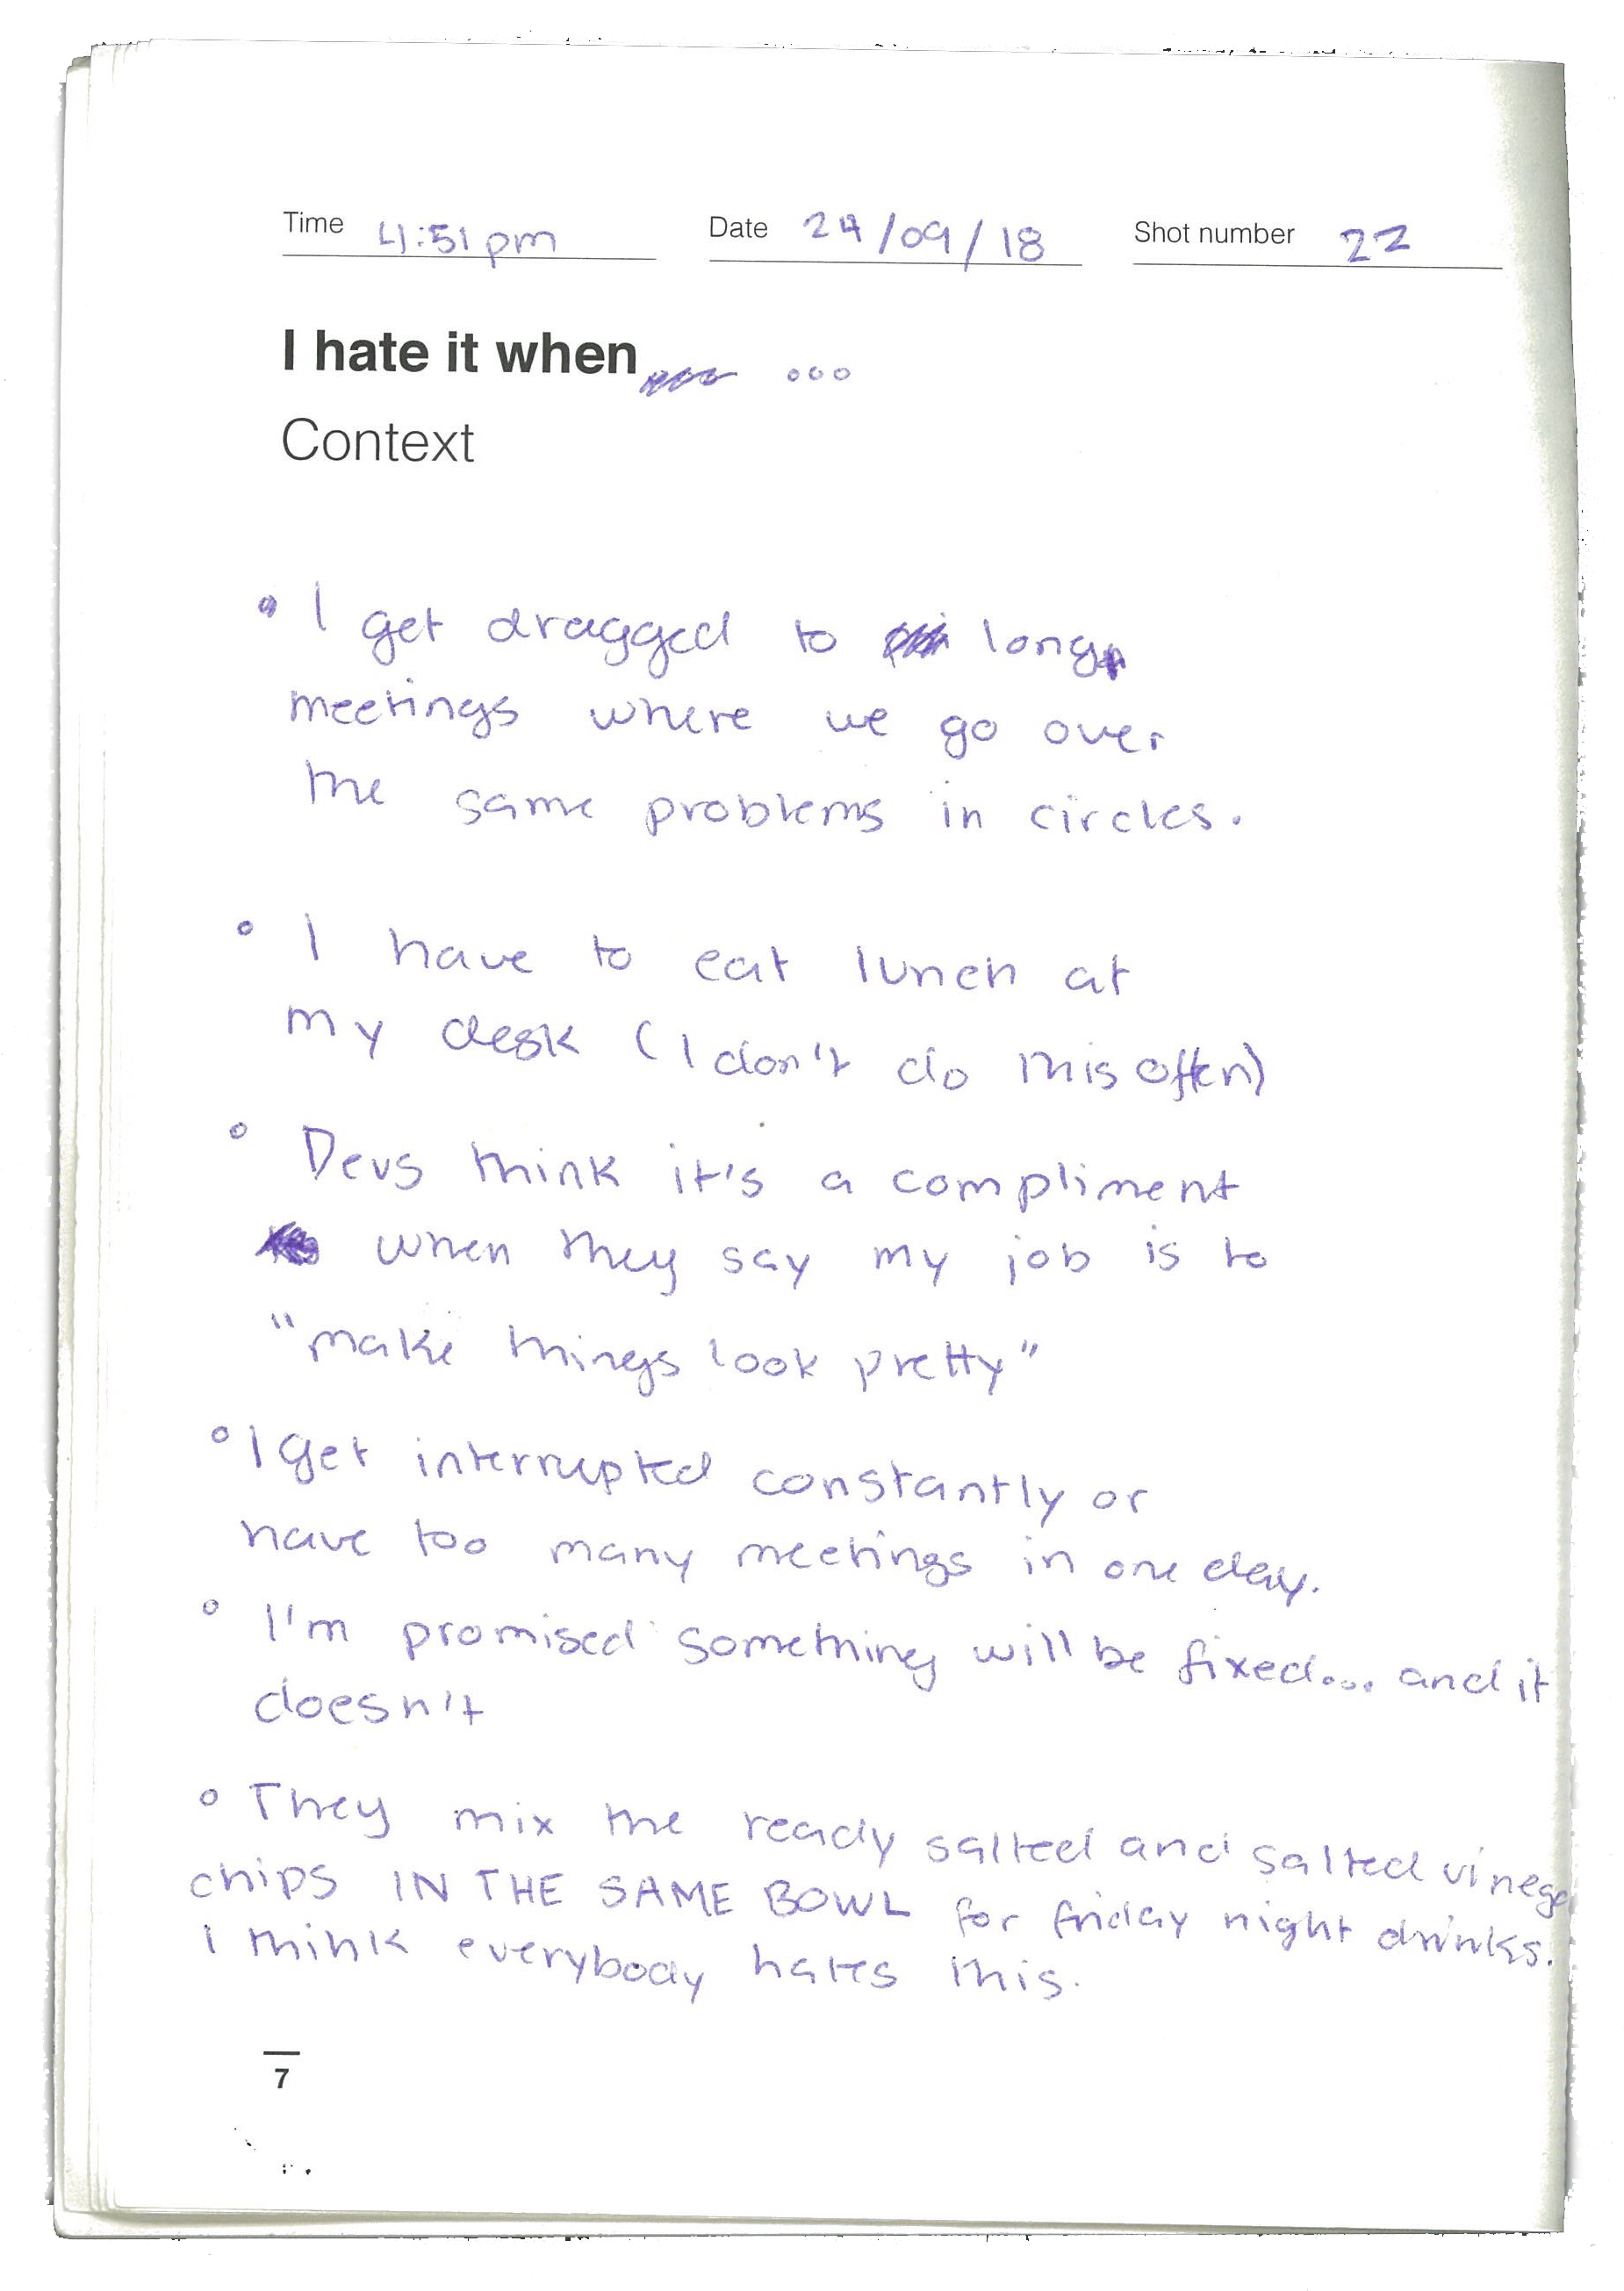 Time 4:51pm Date 24/09/18 Shot number 22
I hate it when ...
Context
• I get dragged to long
meetings where we go over
the same problems in circles.
• I have to eat lunch at
my desk (I don't do this often)
• Devs think it's a compliment
when they say my job is to
"make things look pretty"
• I get interrupted constantly or
have too many meetings in one day.
• I'm promised something will be fixed... and it
doesn't
• They mix the ready salted and salted vinega
chips IN THE SAME BOWL for friday night drinks.
I think everybody hates this.
7